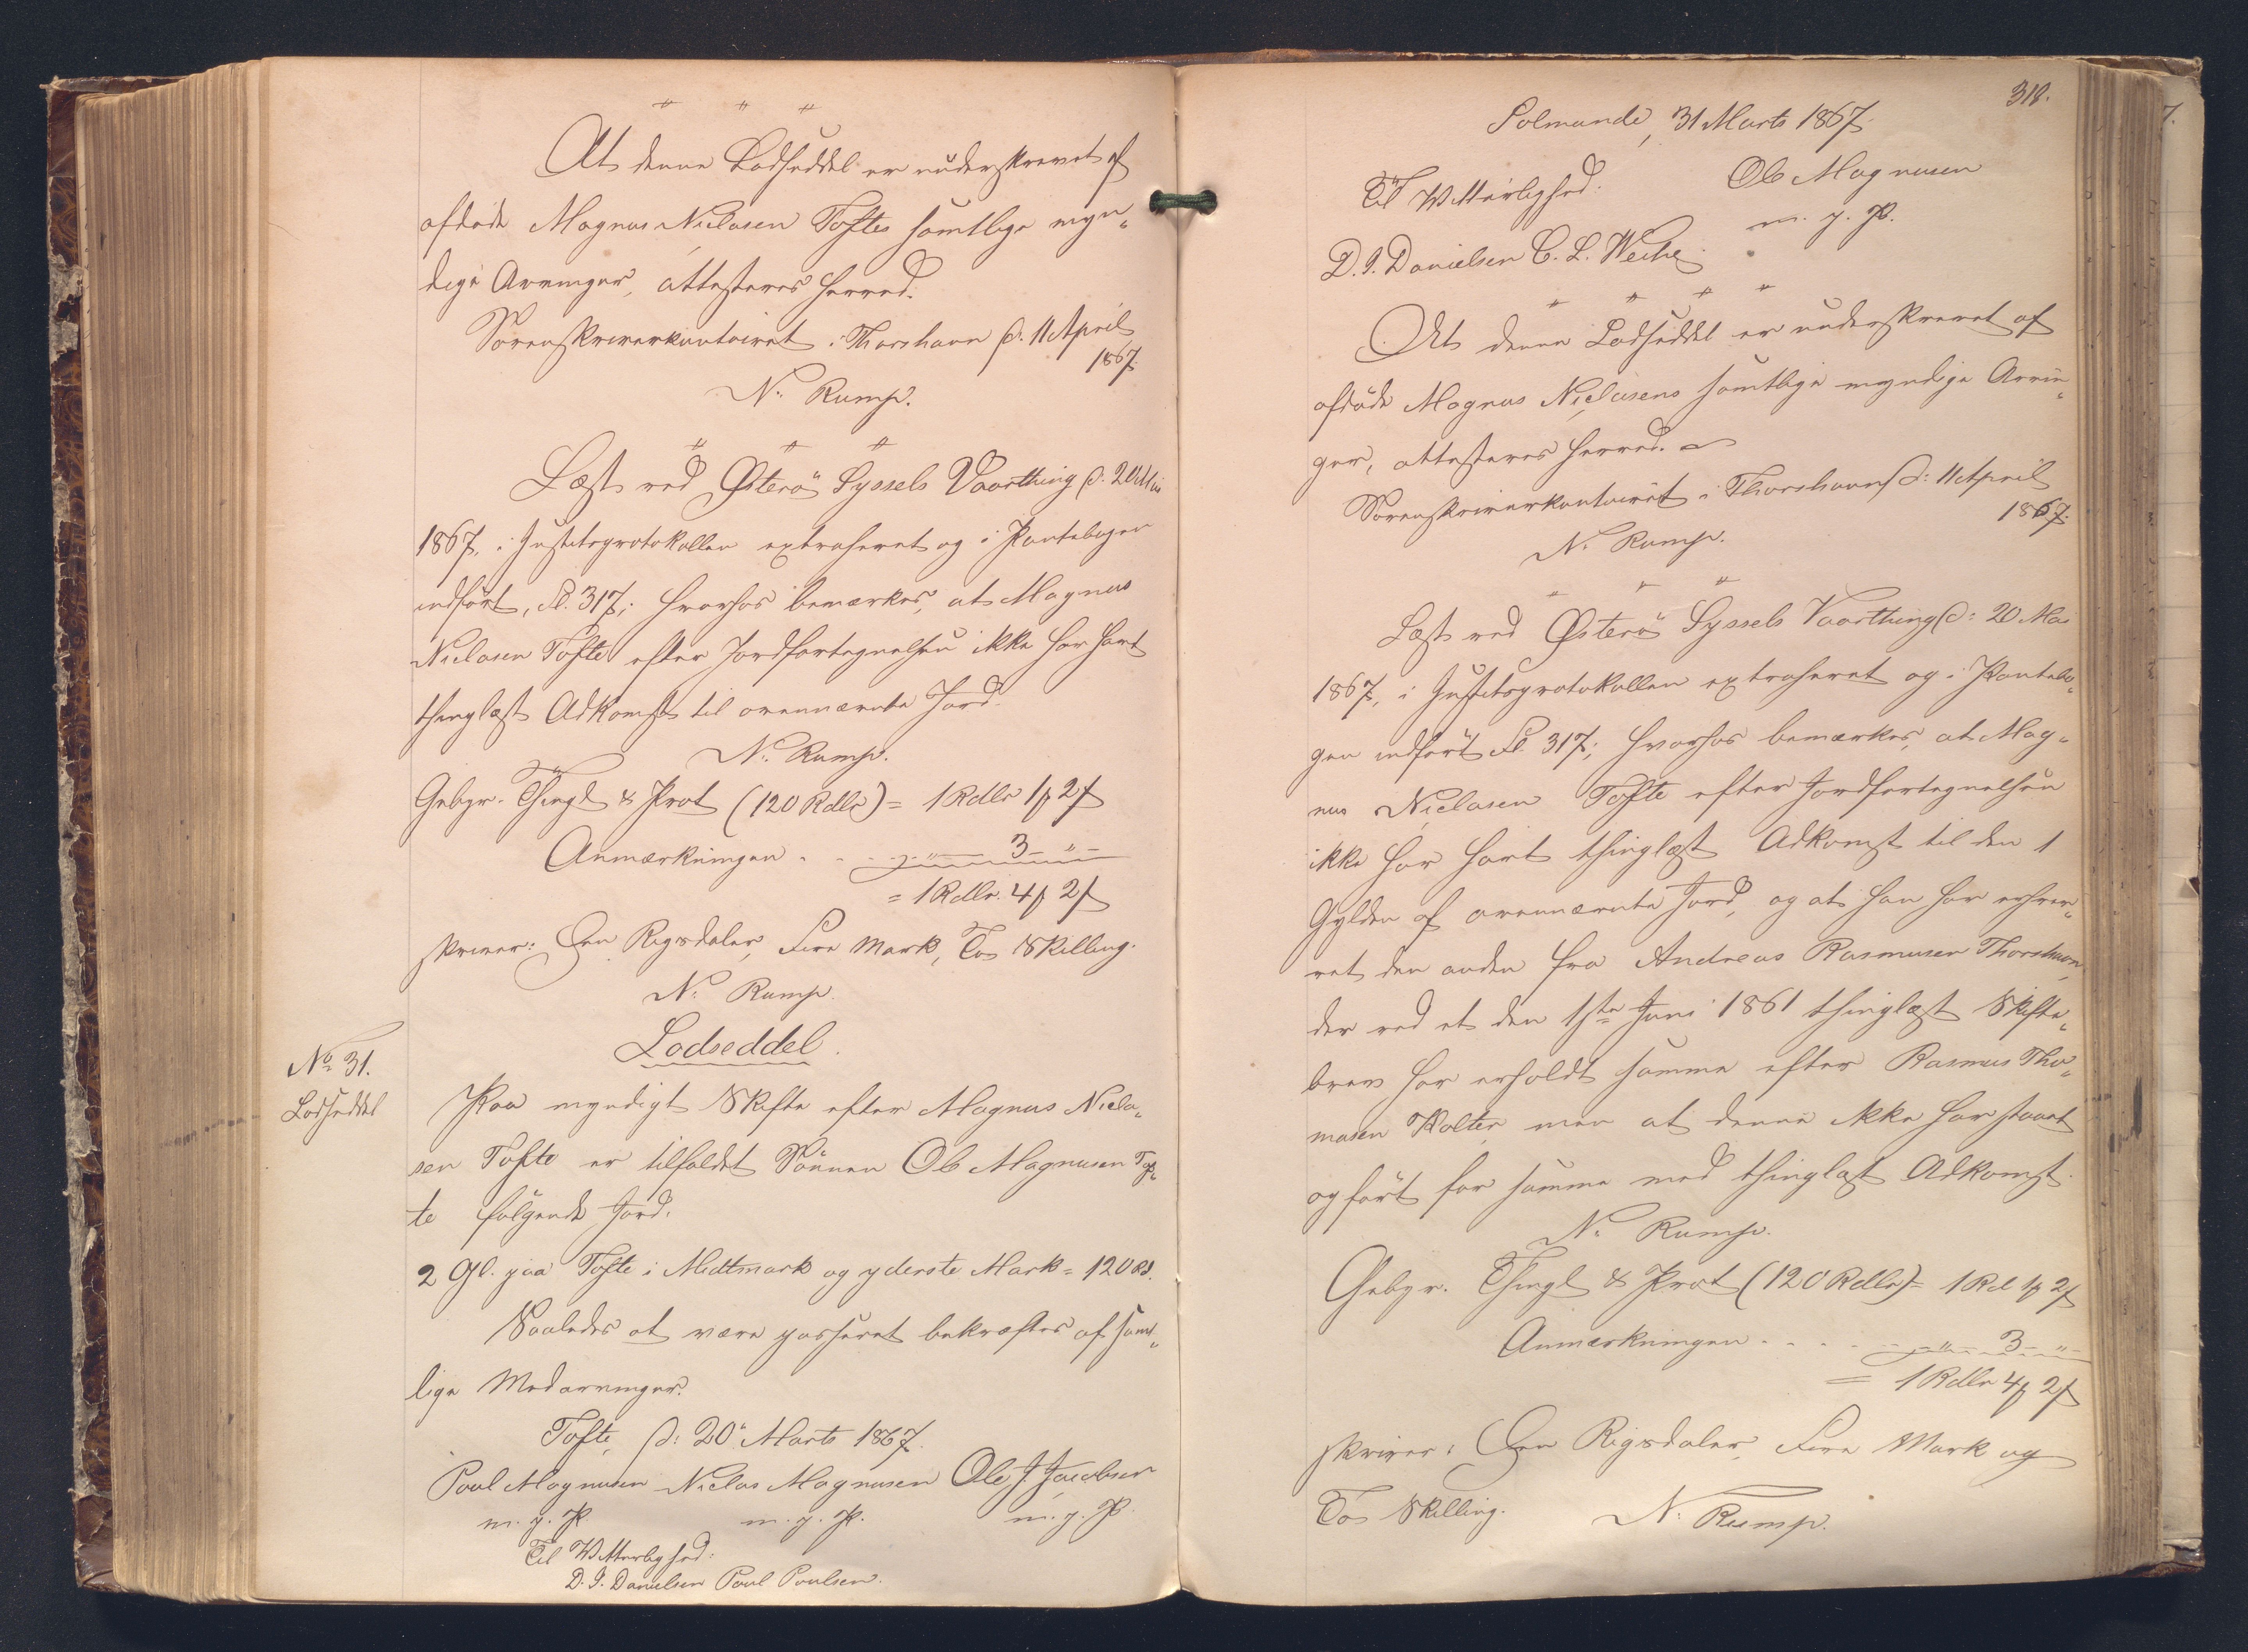 " " "
At denne Lodseddel er underskrevet af
afdøde Magnus Niclasen Toftes samtlige myn-
dige Arvinger, attesteres herved.
Sorenskriverkontoiret i Thorshavn d: 11 April
1867.
N. Rump.
" " "
Læst ved Østerø Syssels Vaarthing d: 20 Mai
1867, i Justitsprotokollen extraheret og i Pantebogen
indført, Fl. 317; hvorhos bemærkes, at Magnus
Niclasen Tofte efter Jordfortegnelsen ikke har havt
thinglæst Adkomst til ovennævnte Jord.
N. Rump.
Gebyr. Thingl & Prot (120 Rdlr) = 1 Rdlr 1 ß 2 ß
Anmærkningen . . . . " 3 - " -
= 1 Rdlr. 4 ß 2 ß
skriver: Een Rigsdaler, Fire Mark, To Skilling.
N. Rump.
Lodseddel.
No 31.
Lodseddel
Paa myndigt Skifte efter Magnus Nicla-
sen Tofte er tilfaldet Sønnen Ole Magnusen Tof-
te følgende Jord:
2 Gl. paa Tofte i Midtmark og yderste Mark = 120 Rd.
Saaledes at være passeret bekræftes af samt-
lige Medarvinger.
Tofte, d: 20 Marts 1867.
Poul Magnusen Niclas Magnusen Ole J. Jacobsen
m. p. P. m. p. P. m. p. P.
Til Vitterlighed:
D. J. Danielsen Poul Poulsen.
318.
Solmunde, 31 Marts 1867.
Til Vitterlighed: Ole Magnusen
m. p. P.
D. J. Danielsen C. L. Weihe
" " " "
At denne Lodseddel er underskrevet af
afdøde Magnus Niclasens samtlige myndige Arvin-
ger, attesteres herved.
Sorenskriverkontoiret i Thorshavn d: 11 April
1867.
N. Rump.
" " "
Læst ved Østerø Syssels Vaarthing d: 20 Mai
1867, i Justitsprotokollen extraheret og i Pantebo-
gen indført Fl. 317; hvorhos bemærkes, at Mag-
nus Niclasen Tofte efter Jordfortegnelsen
ikke har havt thinglæst Adkomst til den 1
Gylden af ovennævnte Jord, og at han har erhver-
vet den anden fra Andreas Rasmusen Thorshavn,
der ved et den 1ste Juni 1861 thinglæst Skifte-
brev har erholdt samme efter Rasmus Tho-
masen Kolter, men at denne ikke har staaet
opført for samme med thinglæst Adkomst.
N. Rump.
Gebyr. Thingl & Prot (120 Rdlr) = 1 Rd 1 ß 2 ß
Anmærkningen . . . . " 3 - " -
= 1 Rdlr 4 ß 2 ß
skriver: Een Rigsdaler, Fire Mark og
To Skilling. N. Rump.